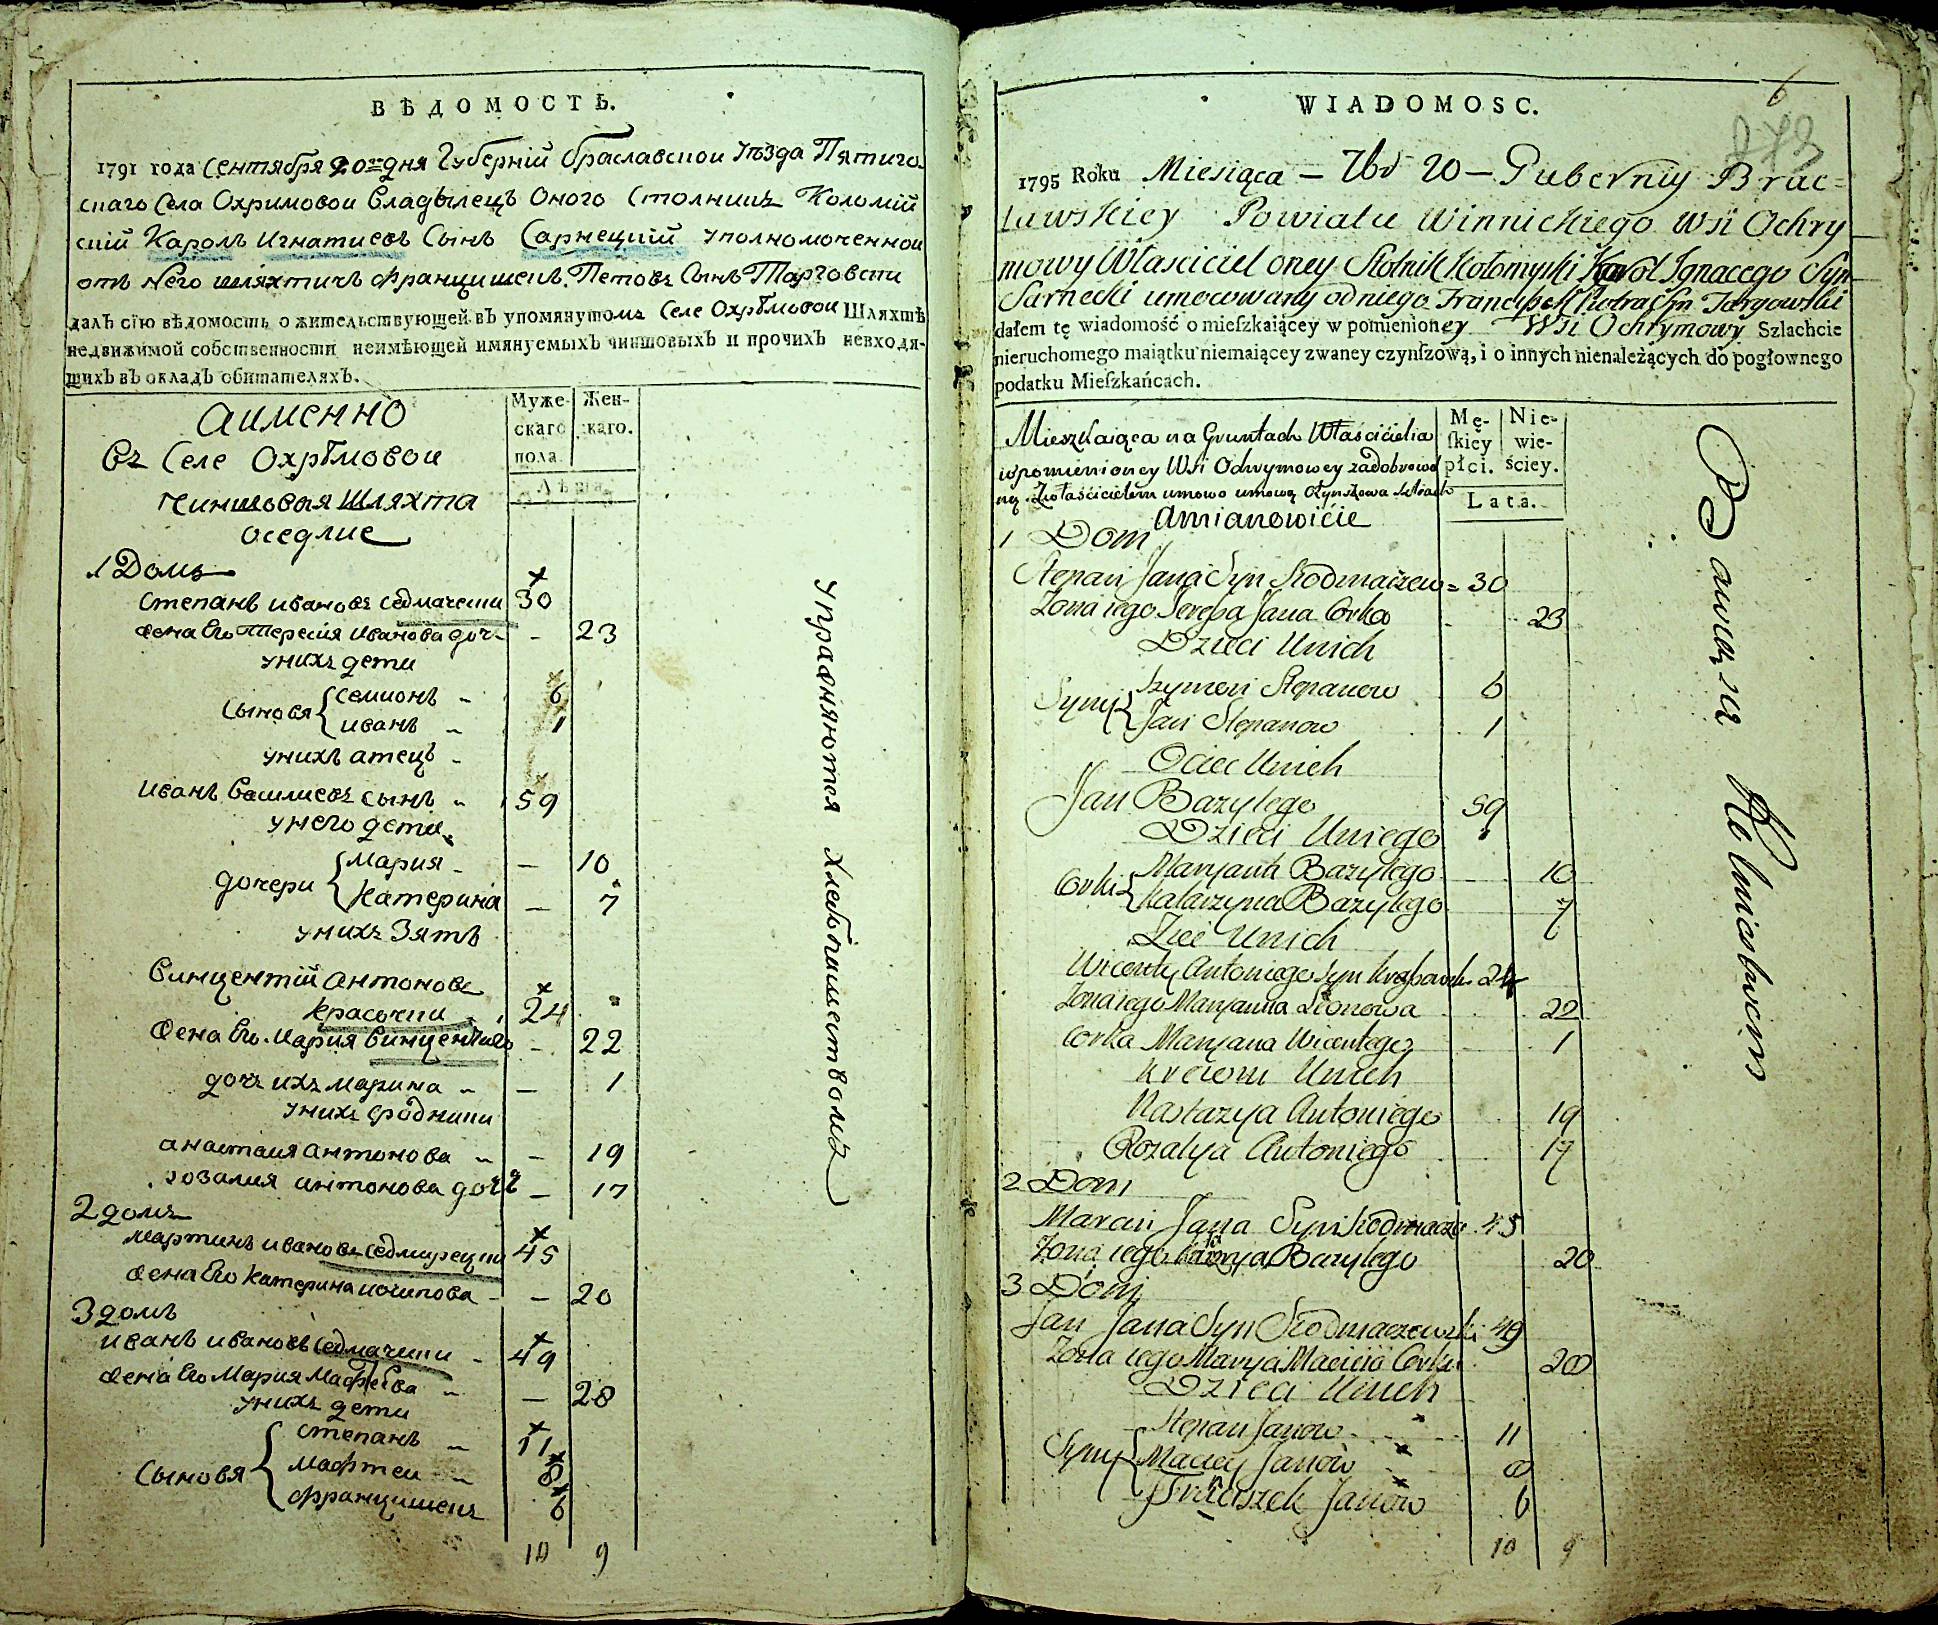 ВѢДОМОСТЬ.
1791 года Сентября 20го дня Губерній Браславскои Уѣзда Пятиго
скаго Села Охримовои Владѣлецъ Оного Столникъ Коломій
скій Кароль Игнатиевъ Сынъ Сарнецкій Уполномоченнои
отъ Него шляхтичъ Францишекъ Петовъ Сынъ Тарговски
далъ сїю вѣдомость о жительствующей въ упомянутомъ Селе Охрѣмовои Шляхтѣ
недвижимой собственности неимѣющей имянуемыхъ чиншовыхъ и прочихъ невходя-
щихъ въ окладъ обитателяхъ.
Муже-
скаго
пола.
Жен-
скаго.
Лѣта.
Аименно
Въ Селе Охрѣмовои
Чиншовая Шляхта
Оседлие
1 Домъ
Степанъ ивановъ Седмачски 30
Жена Его Тересия Иванова доч - 23
Унихъ дети
Сыновя { Семионъ 6
иванъ 1
Унихъ атецъ
Иванъ Василиевъ Сынъ 59
Унего дети
дочери { Мария - 10
Катерина - 7
Унихъ Зятъ
Винцентій Антоновъ
Красочки 24
Жена Его Мария Винцентиго - 22
доч ихъ марина - 1
Унихъ сродники
анастасия антонова - 19
розалия антонова доч - 17
2 домъ
Мартинъ ивановъ Седмирецки 45
Жена Его Катерина иосипова - 20
3 домъ
иванъ ивановъ Седмачски - 49
Жена Его Мария Мафѣева - 28
Унихъ дети
Сыновя { Степанъ 11
Мафтеи 8
Францишекъ 6
10 9
Упражняются хлебопашествомъ
6
WIADOMOSC.
1795 Roku Miesiąca - 7br 20 - Guberniy Brac=
lawskiey Powiatu Winnickiego Wsi Ochry
mowy Właściciel oney Stolnik Kołomyski Karol Ignacego Syn
Sarnecki umocowany od niego Franciszek Piotra Syn Targowski
dałem tę wiadomość o mieſzkaiącey w pomienioney Wsi Ochrymowy Szlachcie
nieruchomego maiątku niemaiącey zwaney czynſzową, i o innych nienależących do pogłownego
podatku Mieſzkańcach.
Mę-
ſkiey
płci.
Nie-
wie-
ściey.
Lata.
Mieszkaiąca na Gruntach Właściciela
wpomienioney Wsi Ochrymowey za dobrowol
ną z Właścicielem umowo
Amianowicie
1 Dom
Stepan Jana Syn Siodmaczew = 30
Zona iego Teresa Jana Corka 23
Dzieci Unich
Syny { Szymon Stepanow 6
Jan Stepanow 1
Ociec Unich
Jan Bazylego 59
Dzieci Uniego
Corki { Maryana Bazylego 10
Katarzyna Bazylego 7
Zięc Unich
Wicenty Antoniego Syn 24
Zona iego Maryanna Leonowa 22
Corka Maryana Wicentego 1
Krewni Unich
Nastazya Antoniego 19
Rozalya Antoniego 17
2 Dom
Marcin Jana Syn Siodmacze 45
Zona iego Bazylego 20
3 Dom
Jan Jana Syn Siodmaczewski 49
Zona iego Marya Macieia Corka 28
Dzieci Unich
Syny { Stepan Janow 11
Maciey Janow 8
Franciszek Janow 6
10 9
Bawią się Rolnictwem